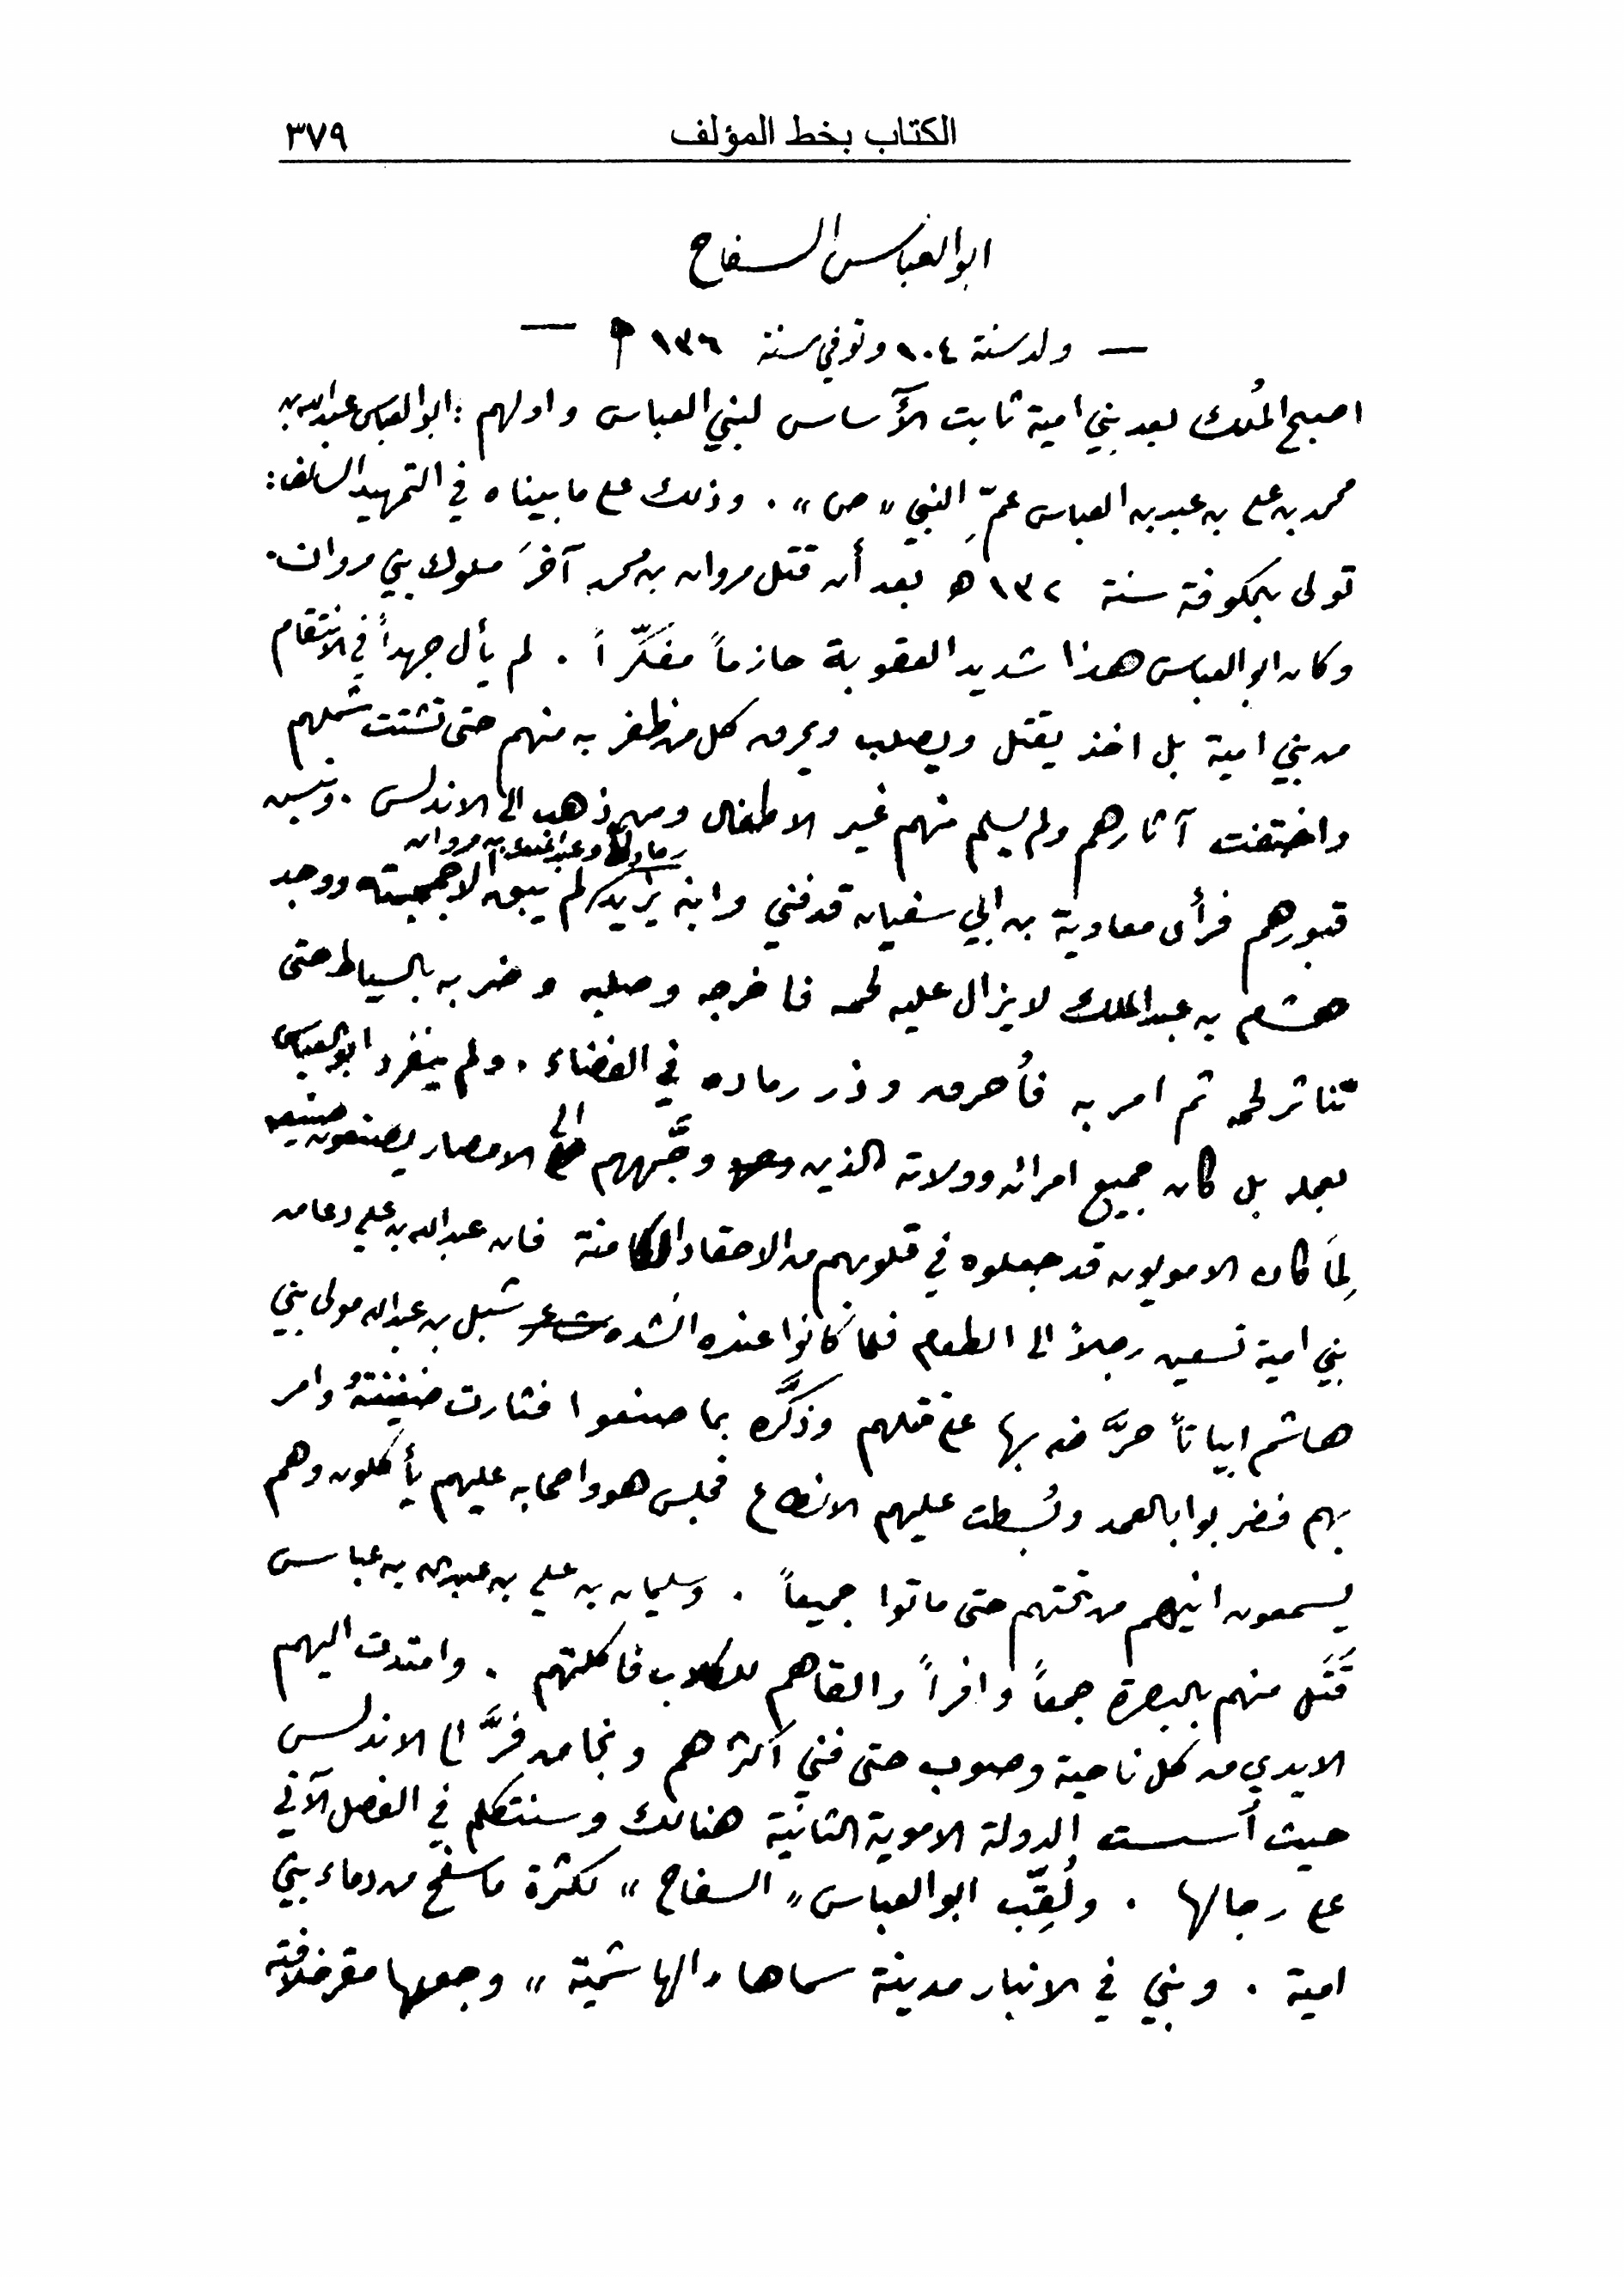 الكتاب بخط المؤلف ٣٧٩
ابو العباس السفاح
— ولد سنة ١٠٤ وتوفي سنة ١٣٦ —
اصبح المُلك بعد بني امية ثابت الآساس لبني العباس واولهم : ابو العباس عبدالله بن
محمد بن علي بن عبد بن العباس عمِّ النبي « ص » . وذلك على ما بيناه في التمهيد السالف :
تولى بالكوفة سنة ١٣٢ ھ بعد أن قتل مروان بن محمد آخرَ ملوك بني مروان .
وكان ابو العباس هذا شديد العقوبة حازماً مفكّراً . لم يأل جهداً في الانتقام
من بني امية بل اخذ يقتل ويصلب ويحرق كل من ظفر به منهم حتى تشتت شملهم
واختفت آثارهم ولم يسلم منهم غير الاطفال ومن ذهب الى الاندلس . ونبش
رماد وعبد الملك بن مروان
قبورهم فرأى معاوية بن ابي سفيان قد فني وابنه يزيد لم يبق الا جمجمته ووجد
هشام بن عبد الملك لا يزال عليه لحمه فاخرجه وصلبه وضربه بالسياط حتى
تناثر لحمه ثم امر به فأُحرق وذر رماده في الفضاء . ولم ينفرد ابو العباس
بعمله بل كان جميع امرائه وولاته الذين وجَّههم الى الامصار يصنعون صنيعه
لِمَا كان الامويون قد جعلوه في قلوبهم من الاحقاد الكامنة فان عبدالله بن علي دعا من
بني امية تسعين رجلاً الى الطعام فلما كانوا عنده انشده شاعر شبل بن عبدالله مولى بني
هاشم ابياتاً حرَّضه بها على قتلهم وذكَّره بما صنعوا فثارت ضغينتهُ وامر
بهم فضربوا بالعمد وبُسطت عليهم الانطاع فجلس هو واصحابه عليهم يأكلون وهم
يسمعون انينهم من تحتهم حتى ماتوا جميعاً . وسليمان بن علي بن عبدالله بن عباس
قَتَل منهم بالبصرة جمعاً وافراً والقاهم للكلاب فاكلتهم . وامتدت اليهم
الايدي من كل ناحية وصوب حتى فني اكثرهم ونجا من فرَّ الى الاندلس
حيث أُسست الدولة الاموية الثانية هنالك وسنتكلم في الفصل الآتي
على رجالها . ولُقِّب ابو العباس « السفاح » لكثرة ما سفح من دماء بني
امية . وبني في الانبار مدينة سماها « الهاشميّة » وجعلها مقر خلافته